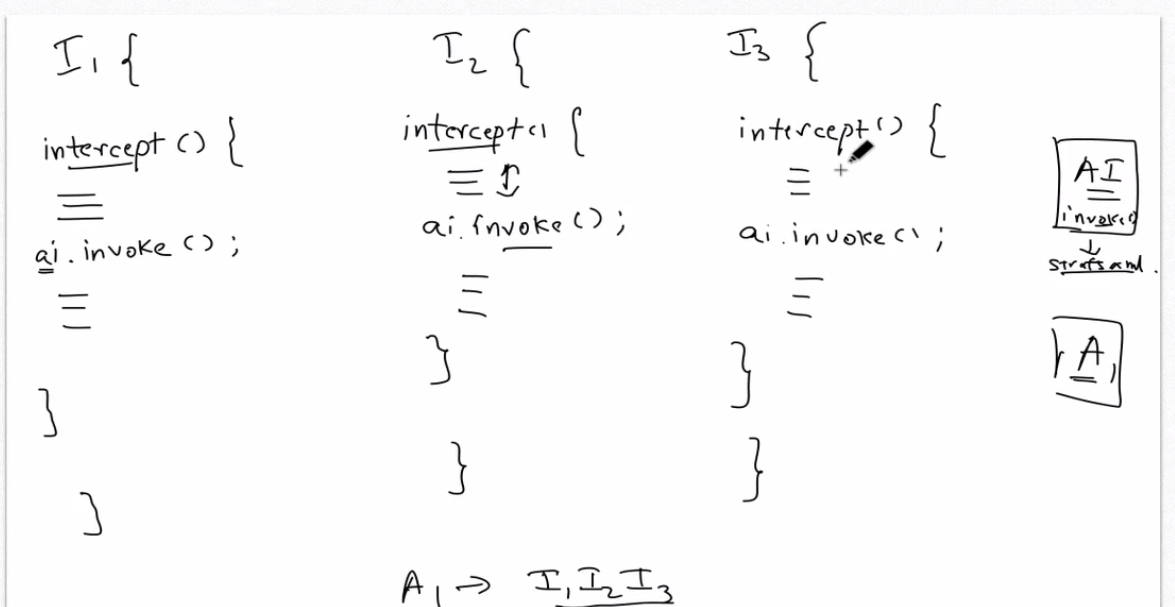 I₁ {
intercept () {
ai.invoke () ;
}
}
I₂ {
intercept () {
ai.invoke () ;
}
}
I₃ {
intercept () {
ai.invoke () ;
}
}
AI
invoke()
A₁
A₁ → I₁ I₂ I₃